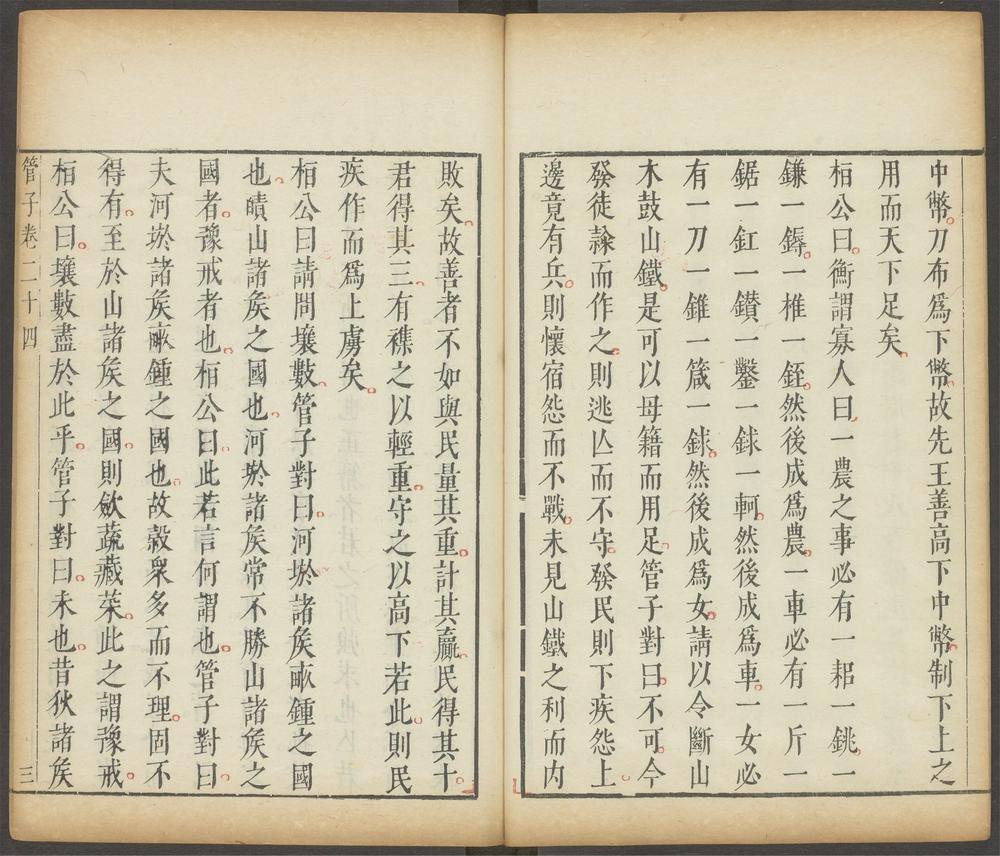 中幣刀布爲下幣故先王善高下中幣制下上之
用而天下足矣
桓公曰衡謂寡人曰一農之事必有一耜一銚一
鎌一鎒一椎一銍然後成爲農一車必有一斤一
鋸一釭一鑽一鑿一銶一軻然後成爲車一女必
有一刀一錐一箴一鉥然後成爲女請以令斷山
木鼓山鐵是可以毋籍而用足管子對曰不可今
發徒隸而作之則逃亡而不守發民則下疾怨上
邊竟有兵則懷宿怨而不戰未見山鐵之利而内
敗矣故善者不如與民量其重計其贏民得其十
君得其三有襍之以輕重守之以高下若此則民
疾作而爲上虜矣
桓公曰請問壤數管子對曰河㳀諸矦畝鍾之國
也䃮山諸矦之國也河㳀諸矦常不勝山諸矦之
國者豫戒者也桓公曰此若言何謂也管子對曰
夫河㳀諸矦畝鍾之國也故穀衆多而不理固不
得有至於山諸矦之國則斂蔬藏菜此之謂豫戒
桓公曰壤數盡於此乎管子對曰未也昔狄諸矦
管子卷二十四 三